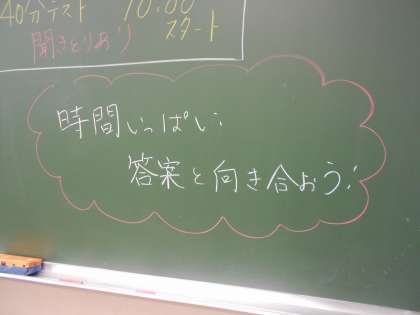 40分テスト 10:00
聞きとりあり スタート
時間いっぱい
答案と向き合おう!